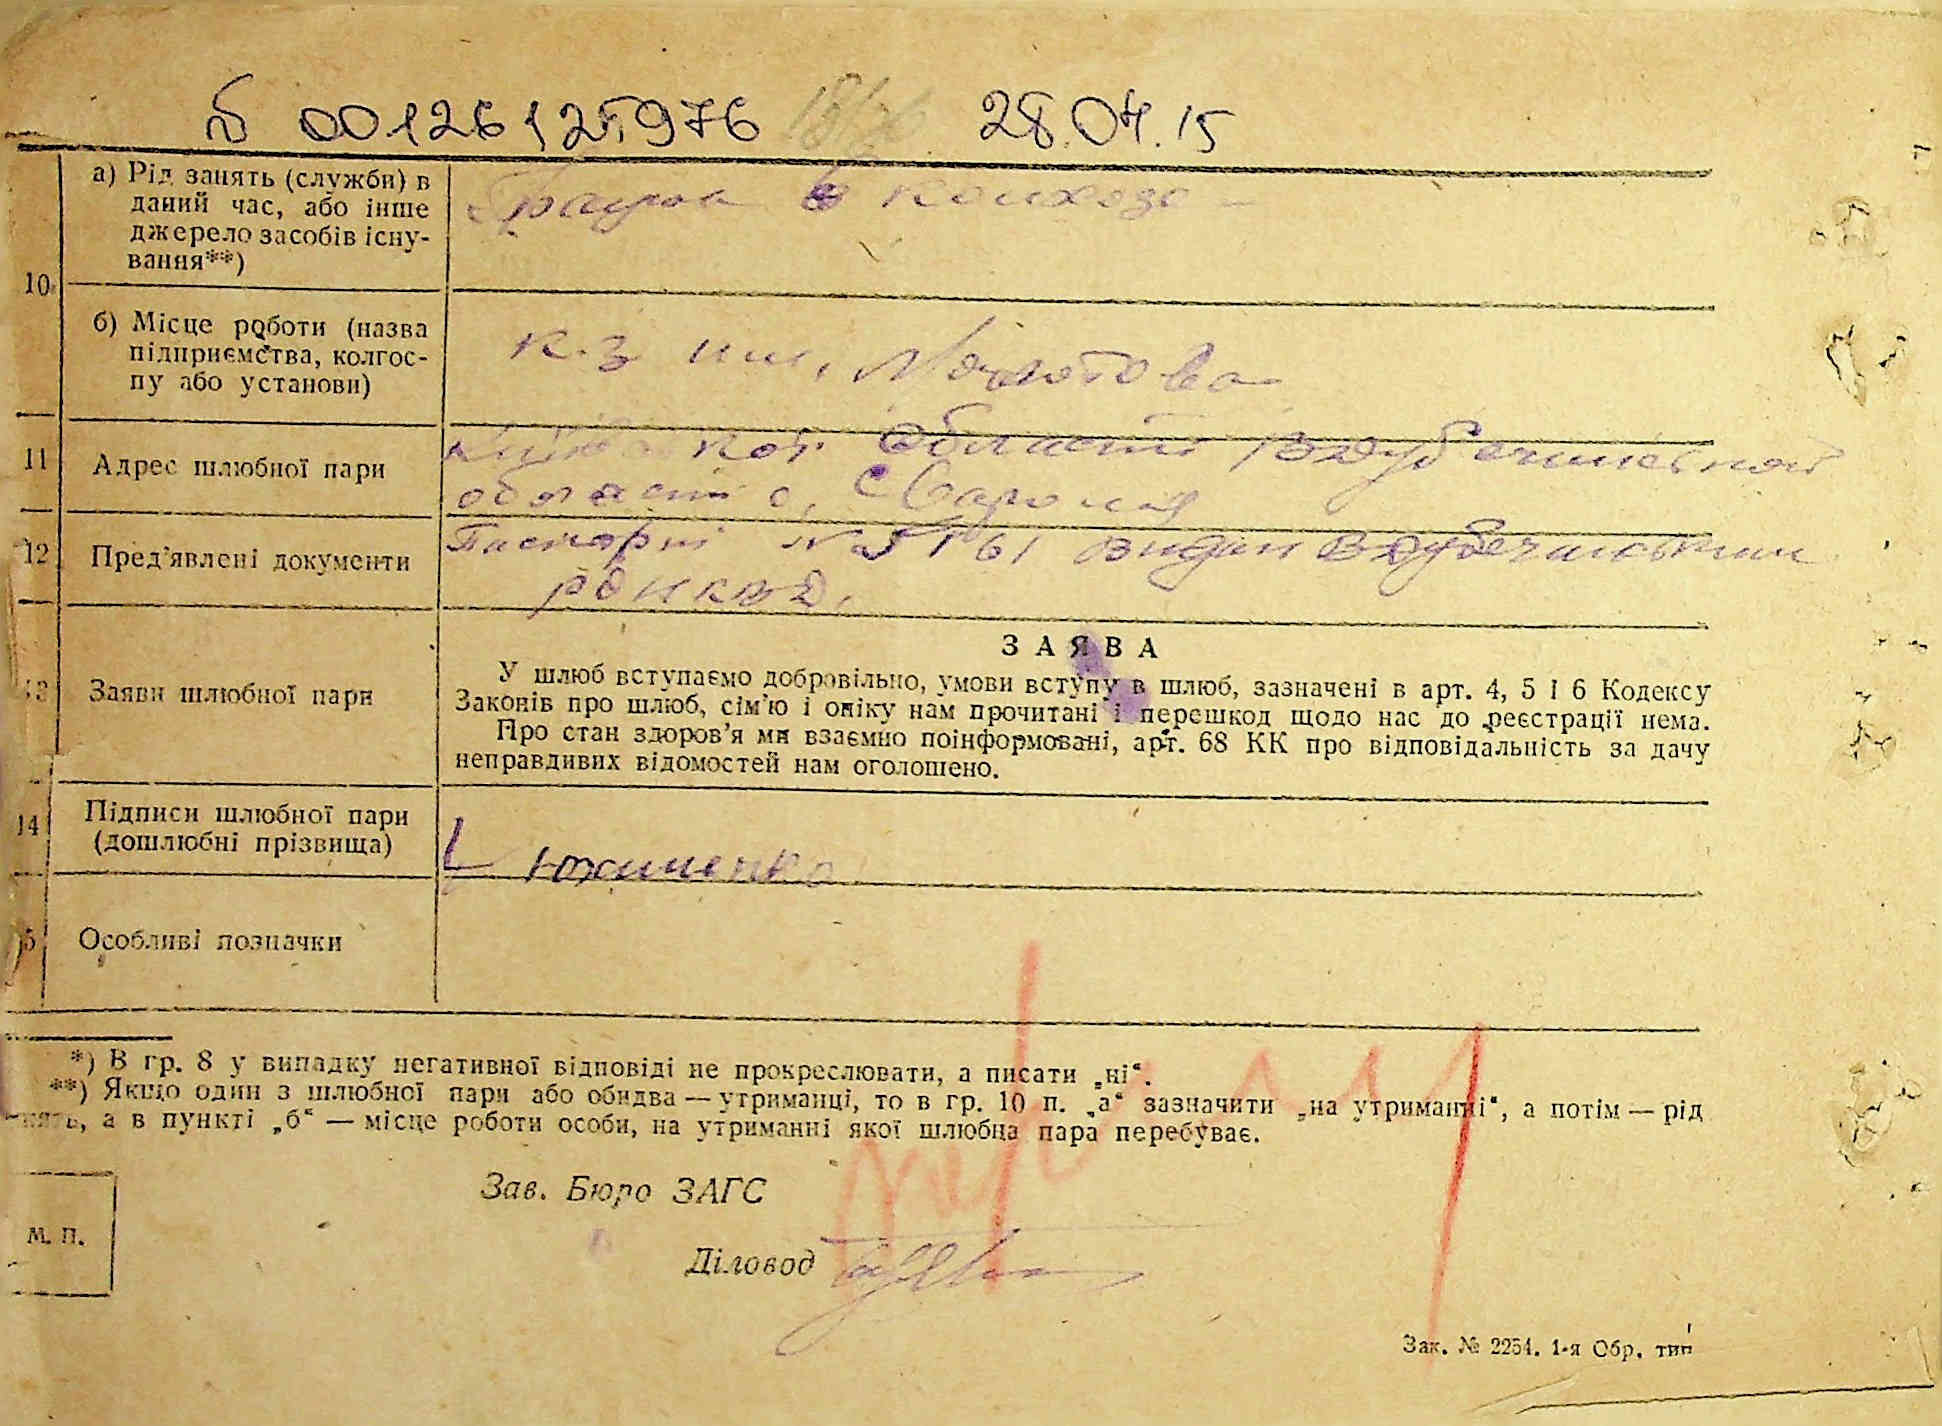 00126125976 28.04.15
а) Рід занять (служби) в
даний час, або інше
джерело засобів існу-
вання**)
в колхозе
10
б) Місце роботи (назва
підприємства, колгос-
пу або установи)
к-з им. Молотова
11
Адрес шлюбної пари
области
области с.
12
Пред'явлені документи
Паспорт №
13
Заяви шлюбної пари
ЗАЯВА
У шлюб вступаємо добровільно, умови вступу в шлюб, зазначені в арт. 4, 5 і 6 Кодексу
Законів про шлюб, сім'ю і опіку нам прочитані і перешкод щодо нас до реєстрації нема.
Про стан здоров'я ми взаємно поінформовані, арт. 68 КК про відповідальність за дачу
неправдивих відомостей нам оголошено.
14
Підписи шлюбної пари
(дошлюбні прізвища)
5
Особливі позначки
*) В гр. 8 у випадку негативної відповіді не прокреслювати, а писати „ні“.
**) Якщо один з шлюбної пари або обидва — утриманці, то в гр. 10 п. „а“ зазначити „на утриманні“, а потім — рід
а в пункті „б“ — місце роботи особи, на утриманні якої шлюбна пара перебуває.
Зав. Бюро ЗАГС
М. П.
Діловод
Зак. № 2254. 1-я Обр. тип